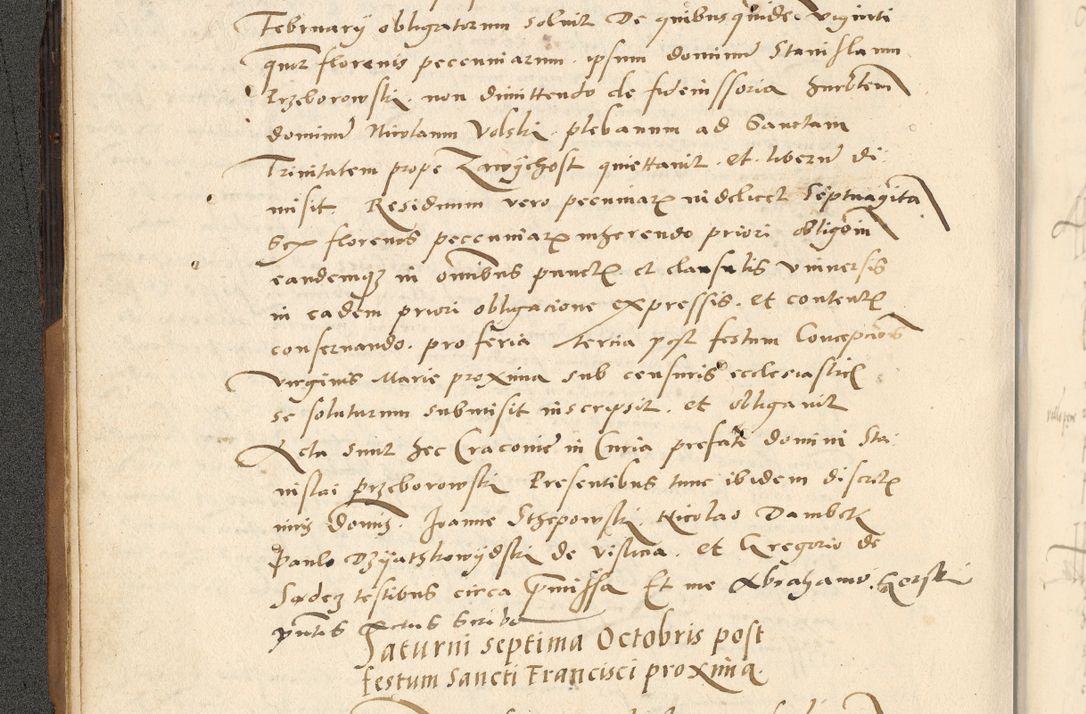 Februarÿ obligatorum solvit De quibus quidē viginti
quīz florenis pecuniarum ipsum dominū Stanislaum
Przeborowski non dimittendo de fideiussoria
dominū Nicolaum Volski plebanum ad Sanctam
Trinitatem prope Zawÿchost quiettavit et liberū di
misit Residuum vero pecuniarz videlicet Septuagīta
Sex florenos pecuniarz inherendo priori
eandemqz in omībus punctis et clausulis universis
in eadem priori obligacione expressis et contentis
conservando pro feria tertia post festum Concepcionis
virginis Marie proxima sub censuris ecclesiasticis
se soluturum submisit inscripsit et obligavit
Acta sunt hec Cracovie in Curia prefati domini Sta
nislai Przeborowski Presentibus tunc ibidem discretis
viris domīs Joanne Sthepowski Nicolao Dambek
Paulo de Vislicia et Gregorio de
Sadek testibus circa premissa Et me Abrahamo Gorski
pntis Actus Scriba
Saturni septima Octobris post
festum Sancti Francisci proxima